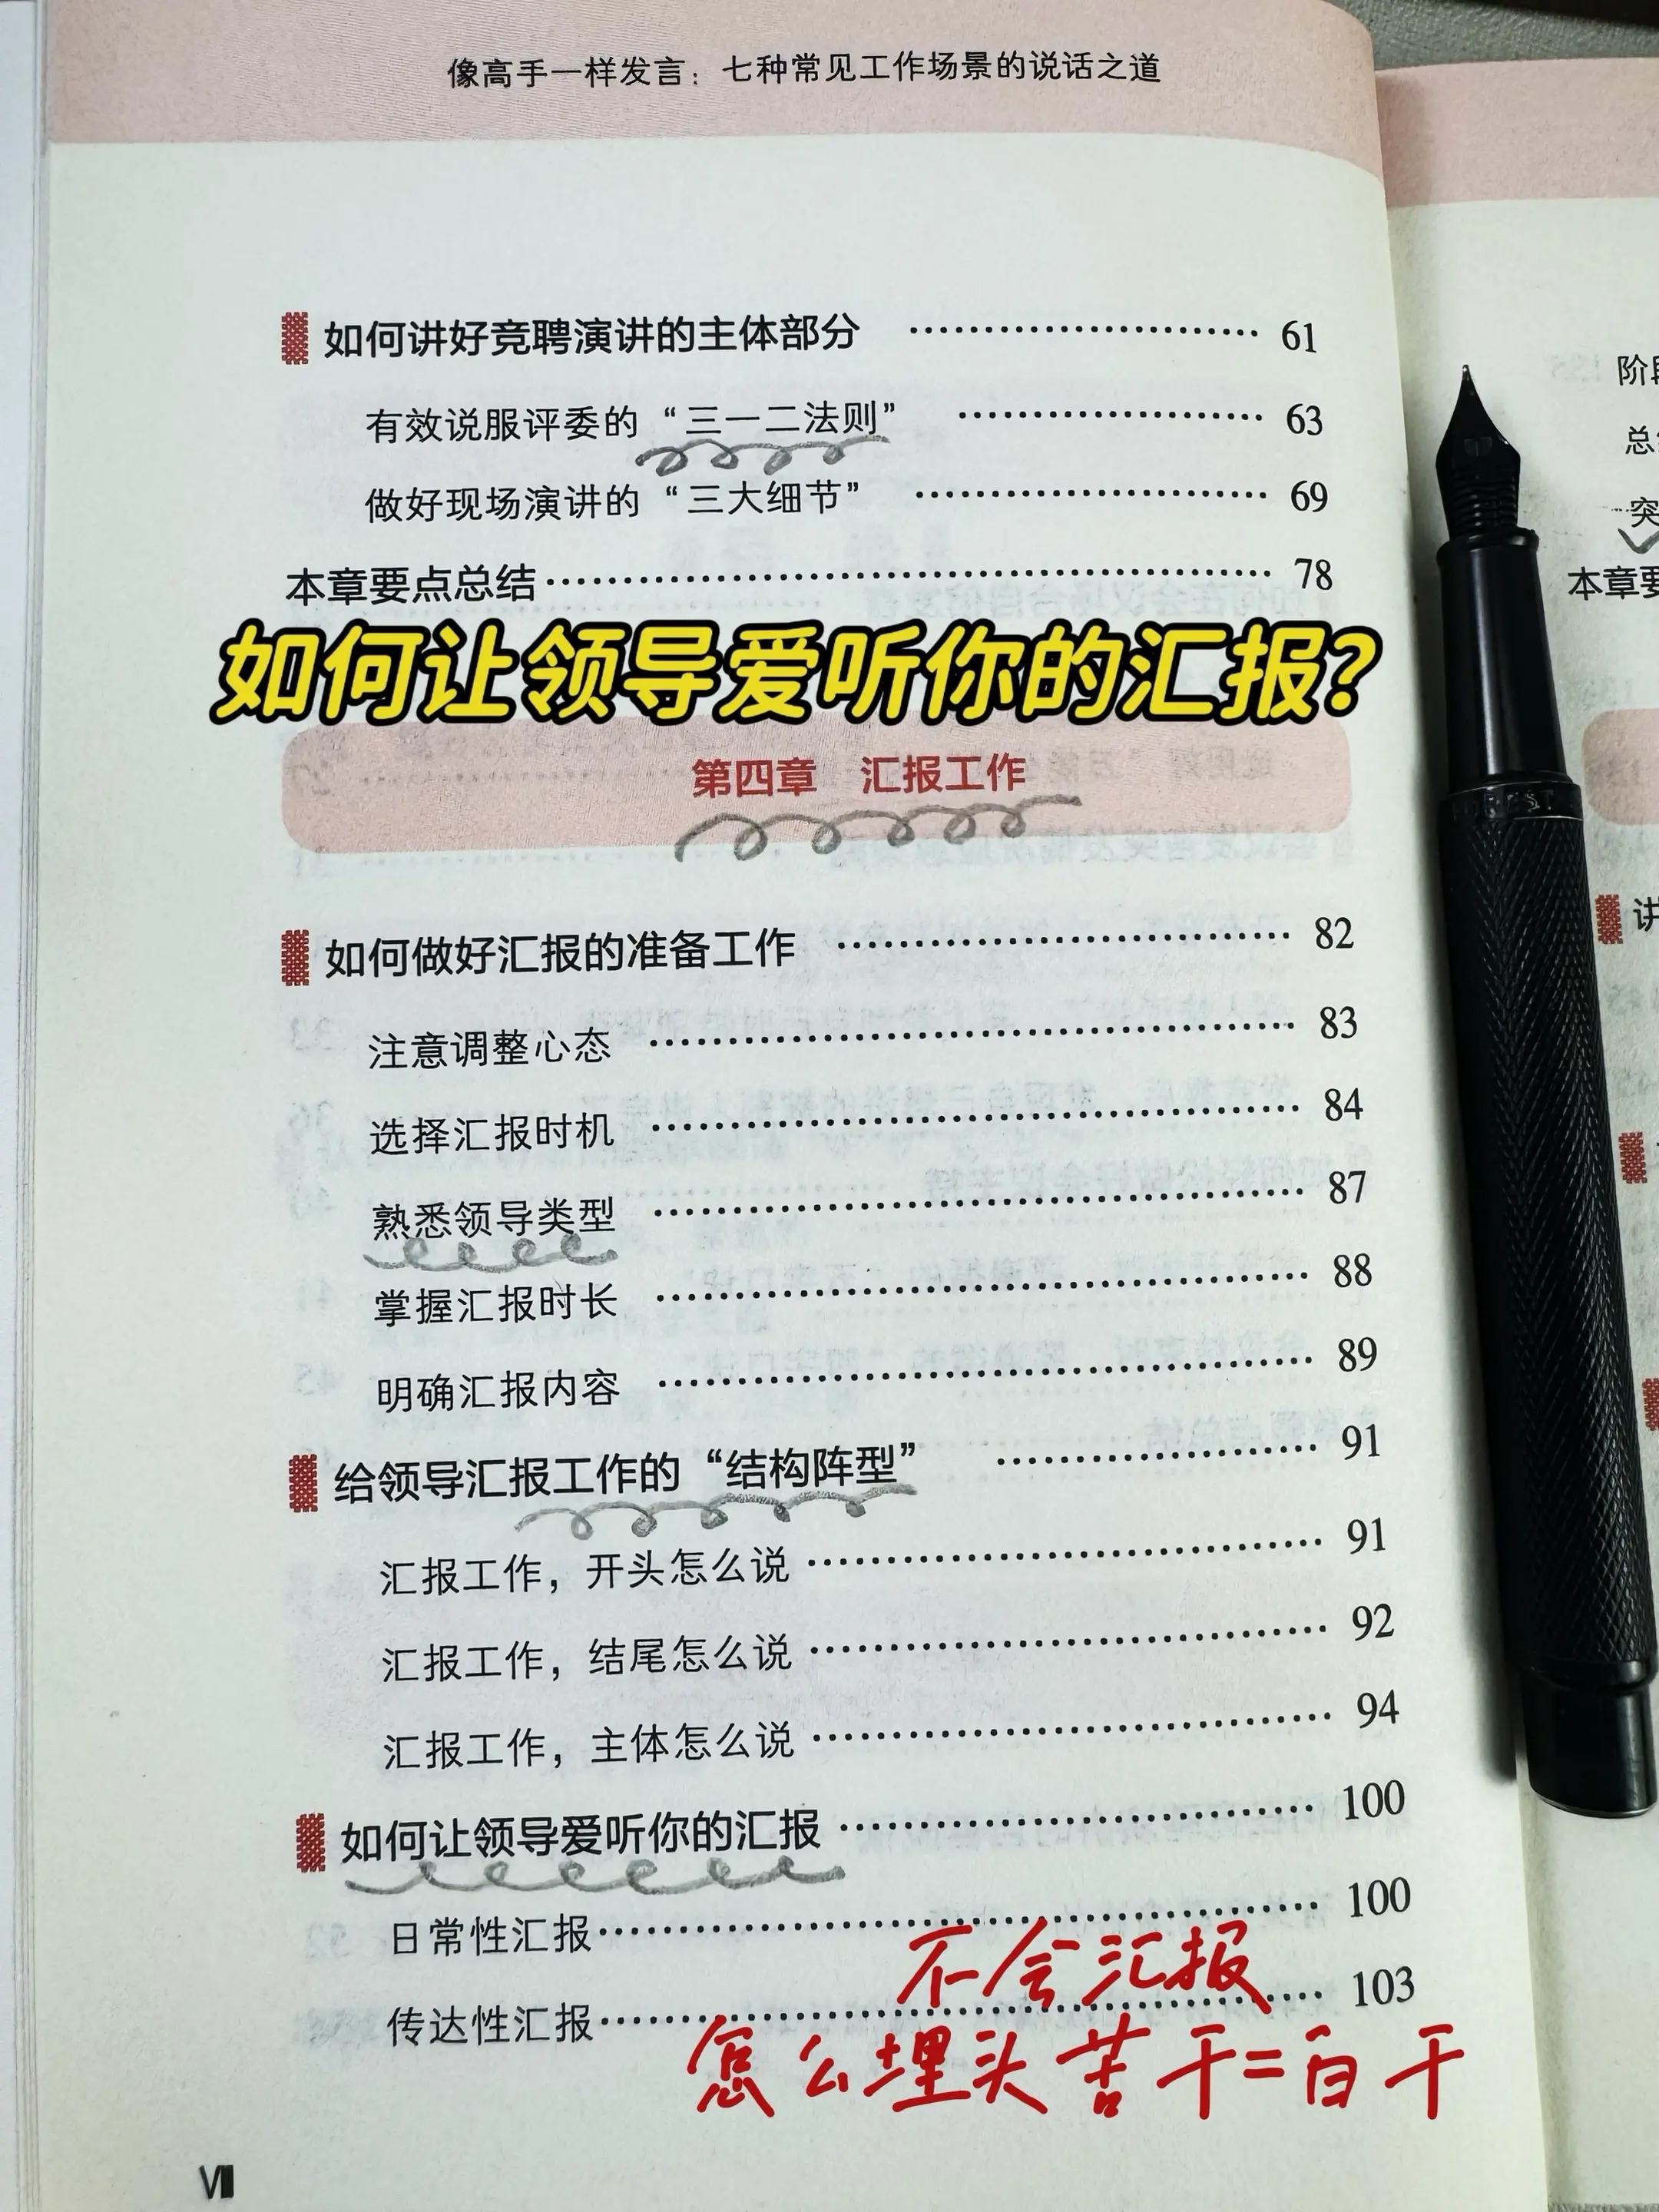 像高手一样发言：七种常见工作场景的说话之道
如何讲好竞聘演讲的主体部分 61
有效说服评委的“三一二法则” 63
做好现场演讲的“三大细节” 69
本章要点总结 78
如何让领导爱听你的汇报?
第四章 汇报工作
如何做好汇报的准备工作 82
注意调整心态 83
选择汇报时机 84
熟悉领导类型 87
掌握汇报时长 88
明确汇报内容 89
给领导汇报工作的“结构阵型” 91
汇报工作，开头怎么说 91
汇报工作，结尾怎么说 92
汇报工作，主体怎么说 94
如何让领导爱听你的汇报 100
日常性汇报 100
传达性汇报 103
不会汇报
怎么埋头苦干=白干
本章要